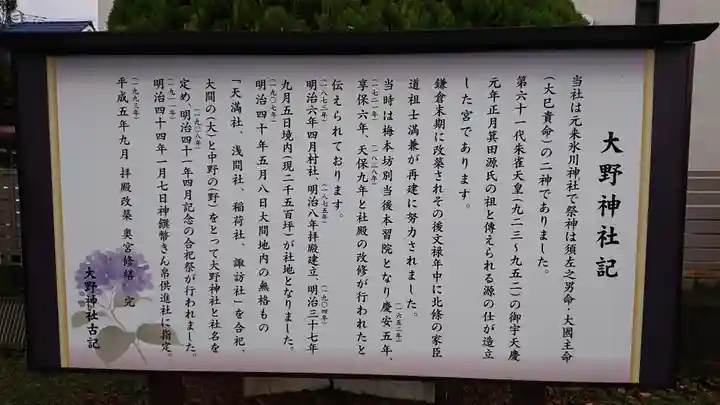 大野神社記
当社は元来氷川神社で祭神は須左之男命・大國主命
(大已貴命)の二神でありました。
第六十一代朱雀天皇(九二三~九五二)の御宇天慶
元年正月箕田源氏の祖と傳えられる源の仕が造立
した宮であります。
鎌倉末期に改築されその後文禄年中に北條の家臣
道祖士満兼が再建に努力されました。
当時は梅本坊別当後本習院となり慶安五年、(一六五二年)
(一七二一年)享保六年、(一八三八年)天保九年と社殿の改修が行われたと
伝えられております。
(一八七三年)明治六年四月村社、(一八七五年)明治八年拝殿建立、(一九〇四年)明治三十七年
九月五日境内(現二千五百坪)が社地となりました。
(一九〇七年)明治四十年五月八日大間地内の無格もの
「天満社、浅間社、稲荷社、諏訪社」を合祀、
大間の(大)と中野の(野)をとって大野神社と社名を
定め、(一九〇八年)明治四十一年四月記念の合祀祭が行われました。
(一九一一年)明治四十四年一月七日神饌幣きん帛供進社に指定。
(一九九三年)平成五年九月 拝殿改築 奥宮修繕 完
大野神社古記